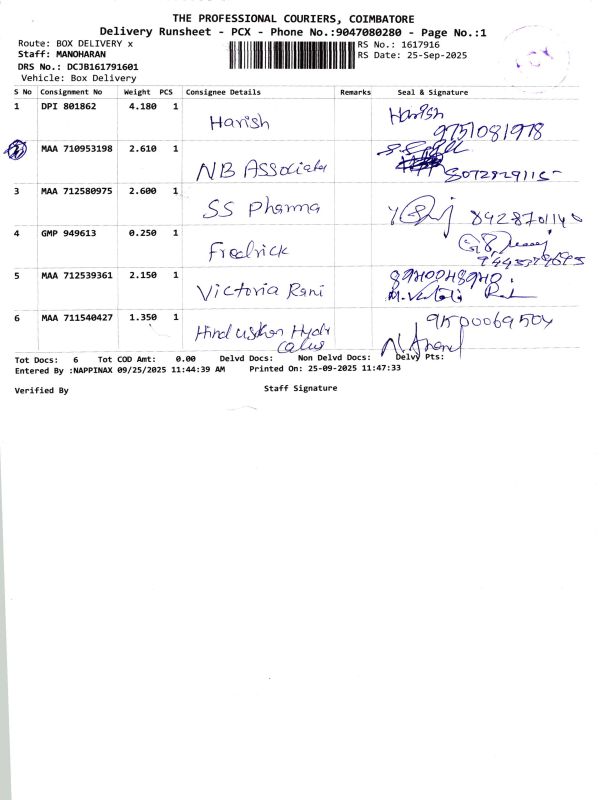 THE PROFESSIONAL COURIERS, COIMBATORE
Delivery Runsheet - PCX - Phone No.:9047080280 - Page No.:1
Route: BOX DELIVERY x RS No.: 1617916
Staff: MANOHARAN RS Date: 25-Sep-2025
DRS No.: DCJB161791601
Vehicle: Box Delivery
S No Consignment No Weight PCS Consignee Details Remarks Seal & Signature
1 DPI 801862 4.180 1 Harish Harish
9751081978
MAA 710953198 2.610 1 NB Associates
3 MAA 712580975 2.600 1 SS Pharma
4 GMP 949613 0.250 1 Fredrick
5 MAA 712539361 2.150 1 Victoria Rani
6 MAA 711540427 1.350 1 Hindusthan Hydr
N. Anand
Tot Docs: 6 Tot COD Amt: 0.00 Delvd Docs: Non Delvd Docs: Delvy Pts:
Entered By :NAPPINAX 09/25/2025 11:44:39 AM Printed On: 25-09-2025 11:47:33
Verified By Staff Signature